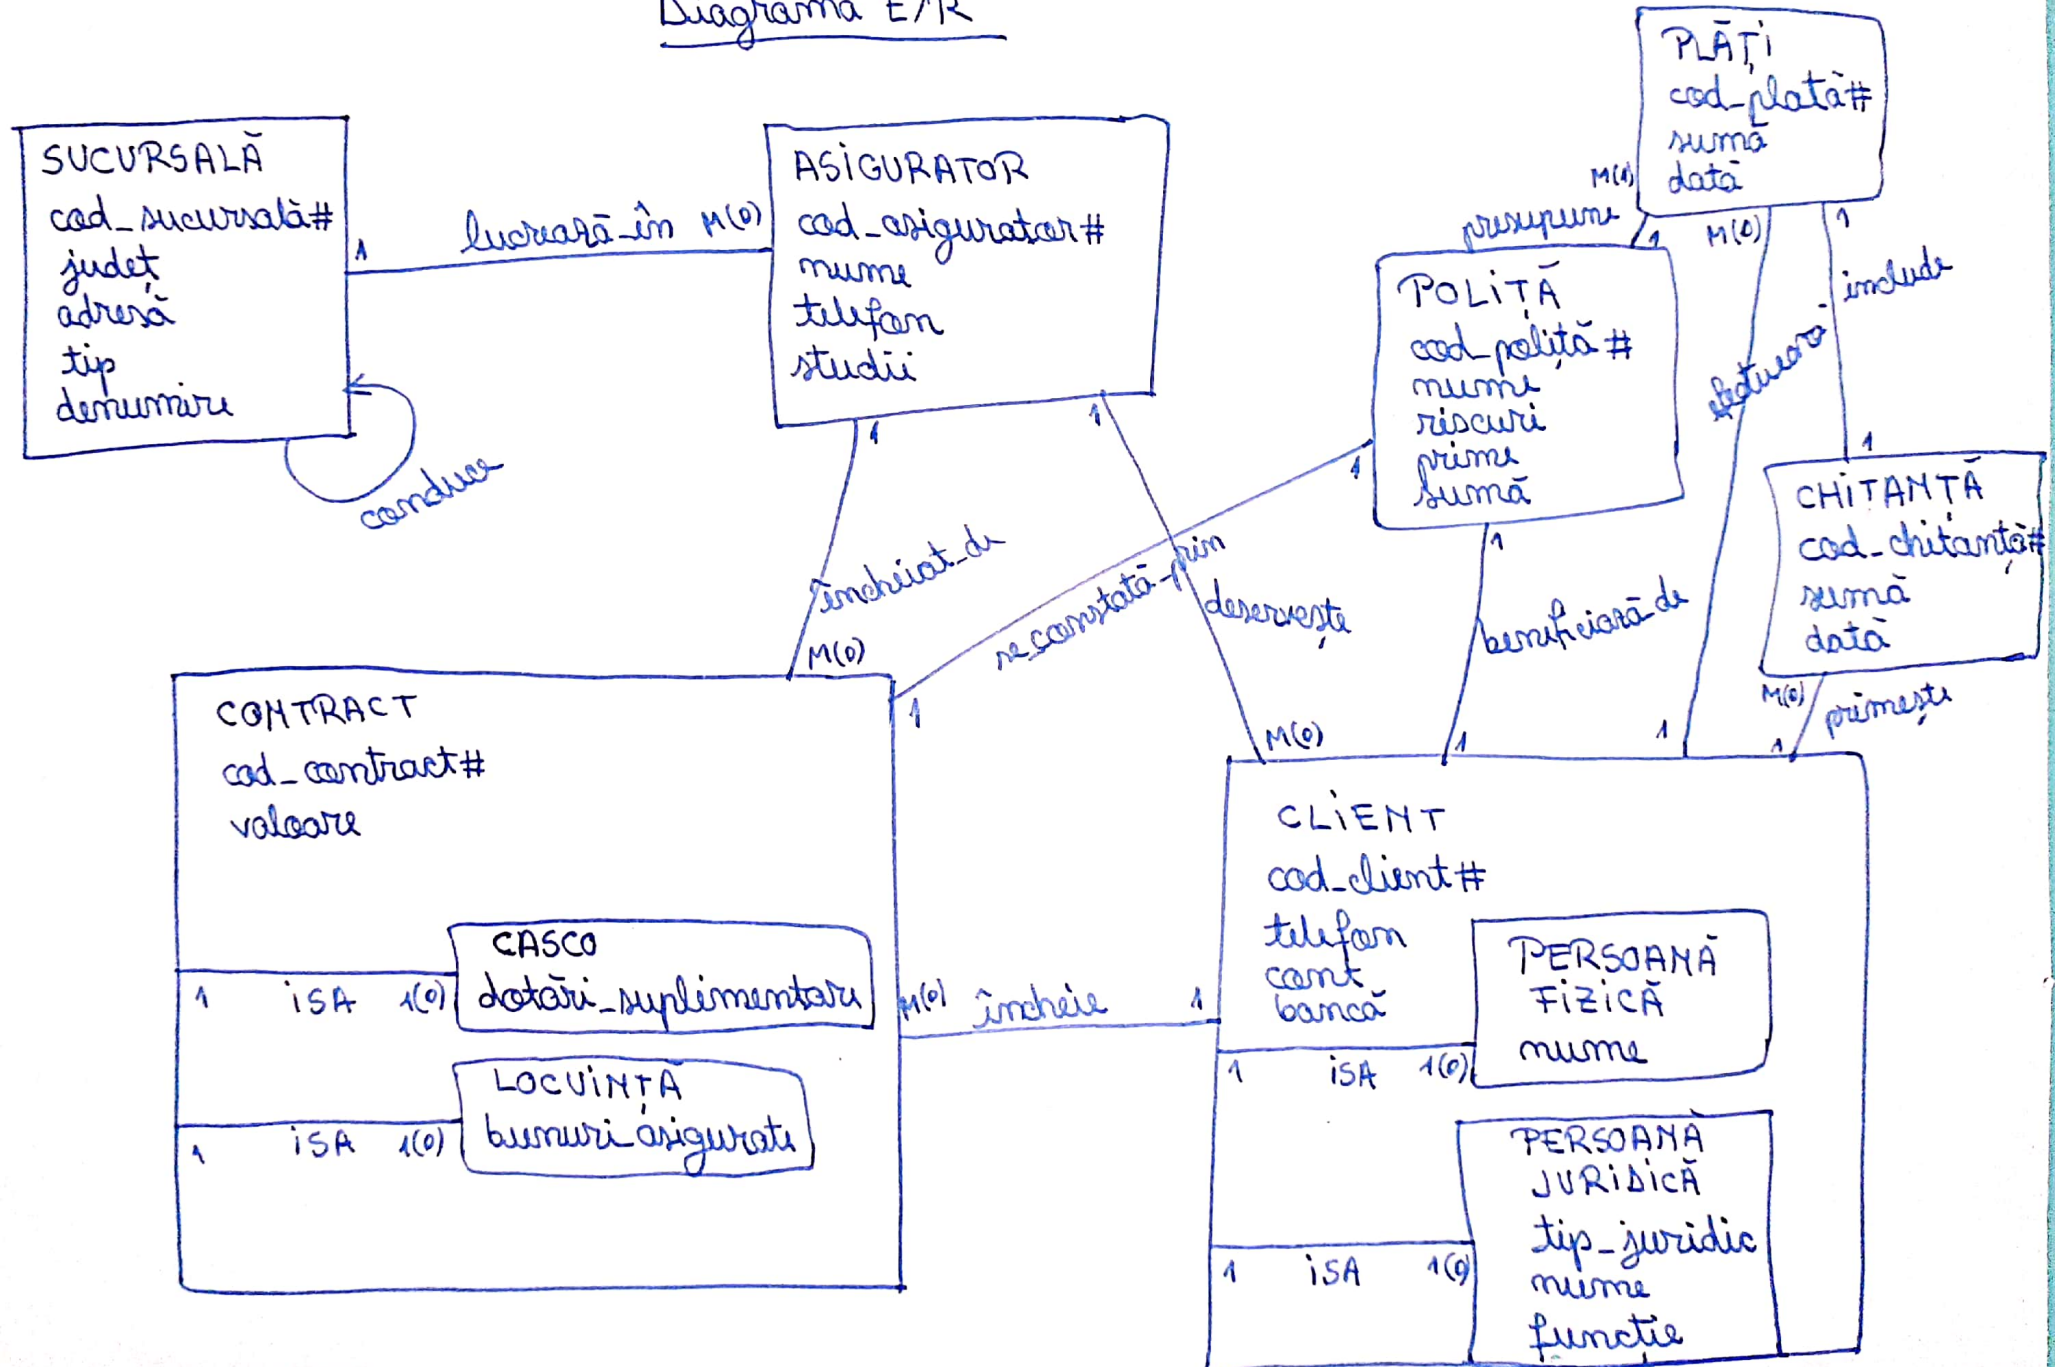 Diagrama E/R
SUCURSALĂ
cod_sucursală#
județ
adresă
tip
denumire
conduce
1
lucrează_în
M(0)
ASIGURATOR
cod_asigurator#
nume
telefon
studii
1
1
PLĂȚI
cod_plată#
sumă
dată
M(1)
presupune
1
M(0)
1
include
efectuează
1
POLIȚĂ
cod_poliță#
nume
riscuri
prime
sumă
1
1
CHITANȚĂ
cod_chitanță#
sumă
dată
M(0)
primește
încheiat_de
M(0)
se_constată_prin
1
deservește
M(0)
beneficiază_de
1
1
1
CONTRACT
cod_contract#
valoare
CASCO
dotări_suplimentare
1 ISA 1(0)
LOCUINȚĂ
bunuri_asigurate
1 ISA 1(0)
M(0) încheie 1
CLIENT
cod_client#
telefon
cont
bancă
PERSOANĂ
FIZICĂ
nume
1 ISA 1(0)
PERSOANĂ
JURIDICĂ
tip_juridic
nume
funcție
1 ISA 1(0)